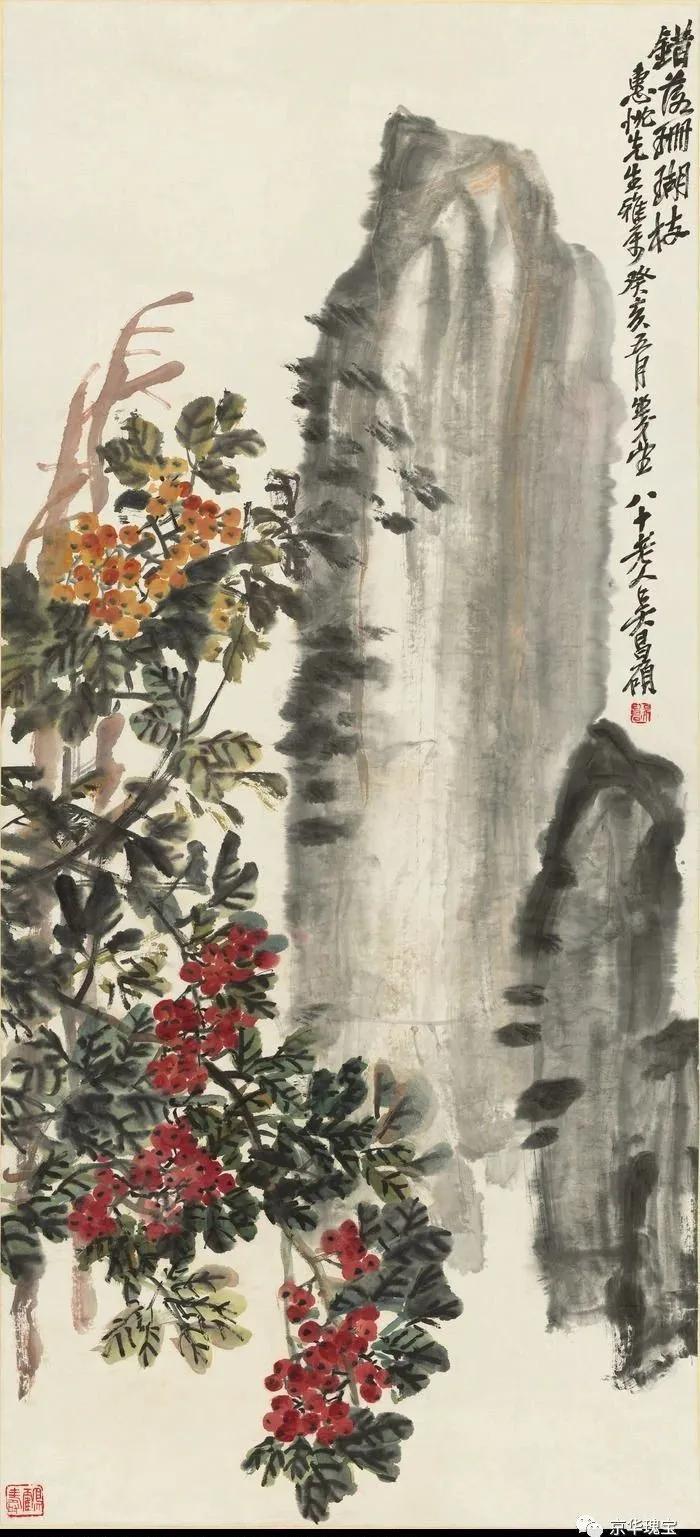 錯落珊瑚枝
惠忱先生雅屬癸亥五月花堂八十老人吳昌碩
京华瑰宝